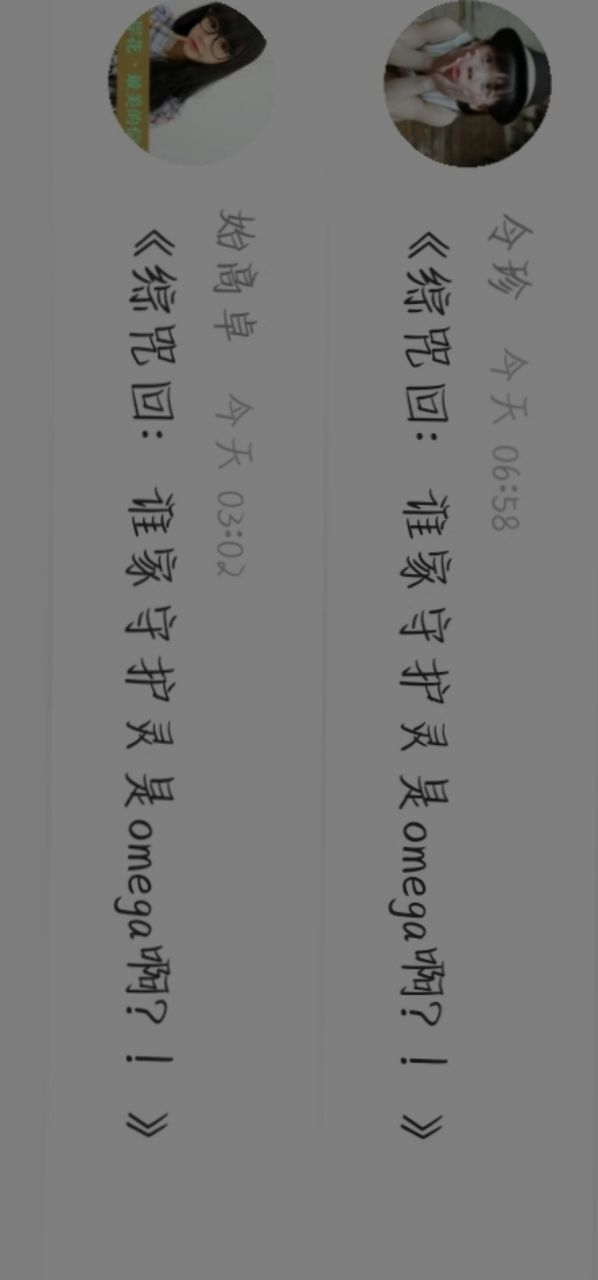 令珍 今天 06:58
《综咒回： 谁家守护灵是omega啊？！ 》
始高卓 今天 03:02
《综咒回： 谁家守护灵是omega啊？！ 》